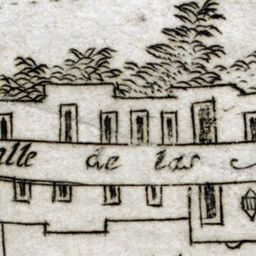 alle de las